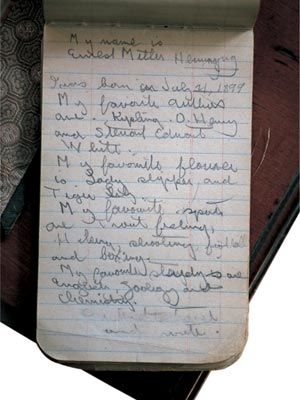 My name is
Ernest Miller Hemingway
I was born on July 21, 1899
My favorite authors
are Kipling, O. Henry
and Steuart Edward
White.
My favourite flower
is Lady slipper and
Tiger Lily.
My favourite sports
are Trout fishing,
Hiking, shooting, football
and boxing.
My favorite studies are
English, Zoology and
Chemistry.
and write.